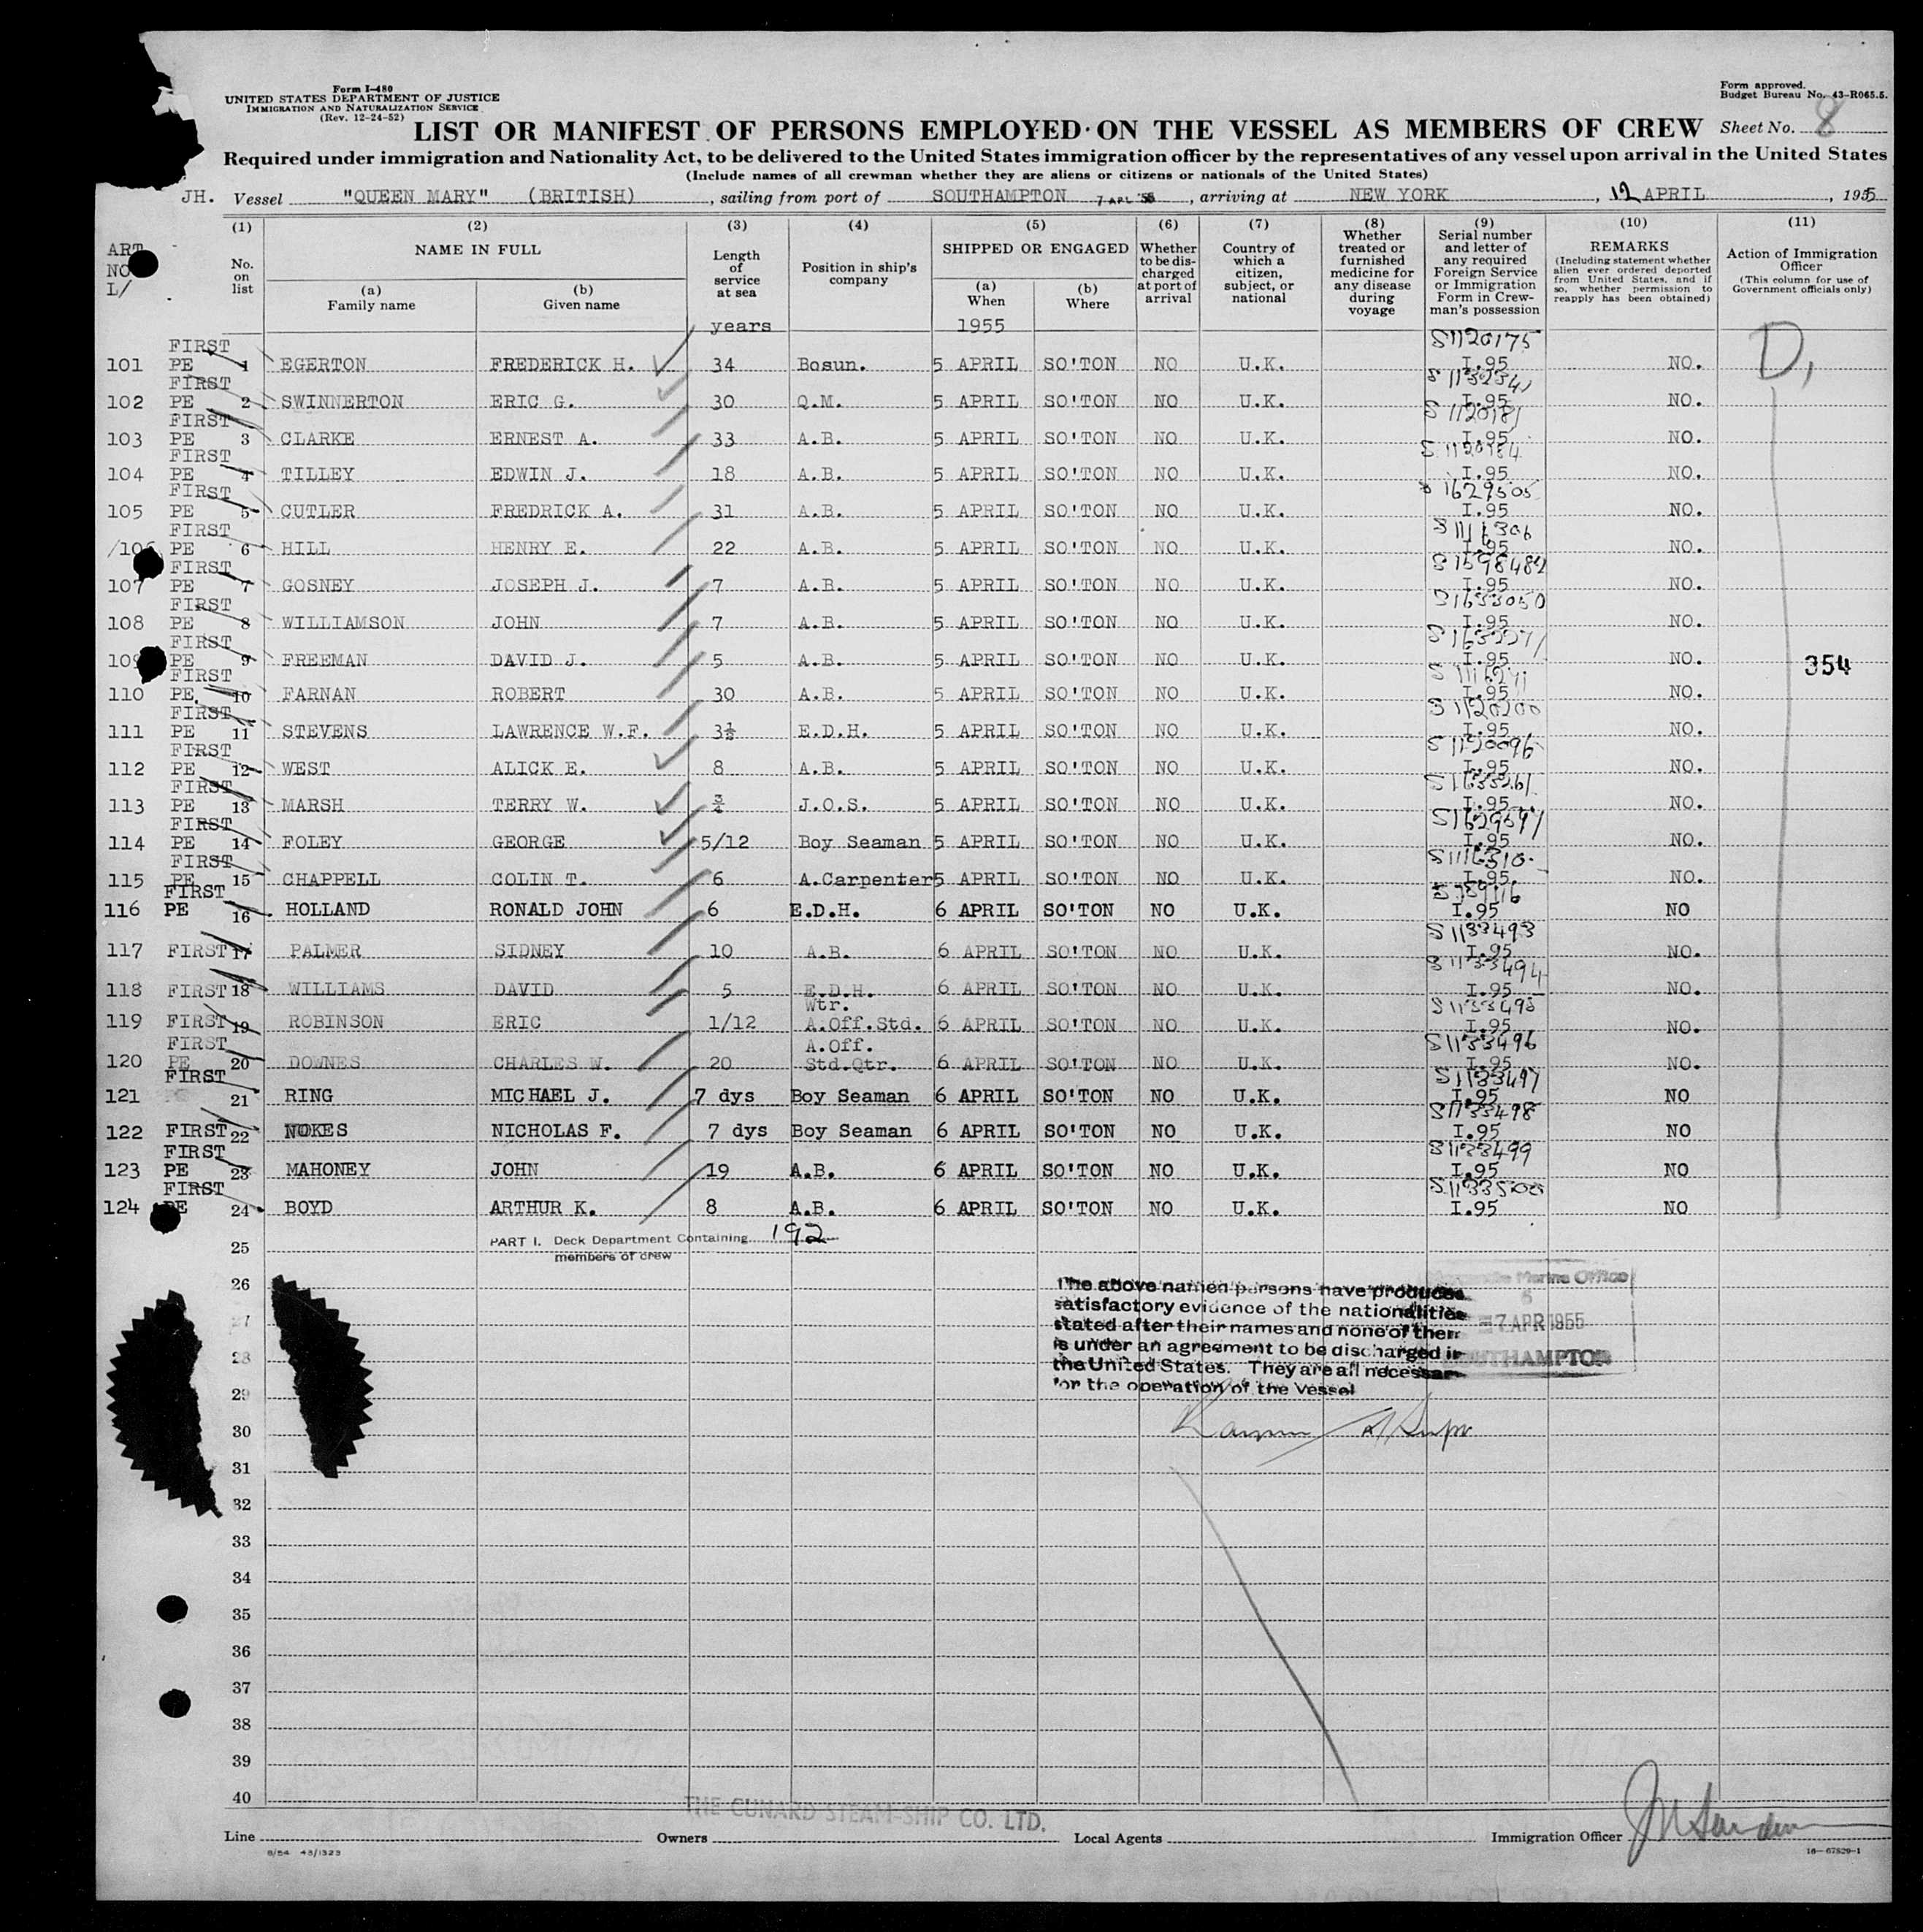 Form I-480
UNITED STATES DEPARTMENT OF JUSTICE
IMMIGRATION AND NATURALIZATION SERVICE
(Rev. 12-24-52)
Form approved.
Budget Bureau No. 43-R065.5.
LIST OR MANIFEST OF PERSONS EMPLOYED ON THE VESSEL AS MEMBERS OF CREW
Sheet No. 8
Required under immigration and Nationality Act, to be delivered to the United States immigration officer by the representatives of any vessel upon arrival in the United States
(Include names of all crewman whether they are aliens or citizens or nationals of the United States)
JH. Vessel "QUEEN MARY" (BRITISH), sailing from port of SOUTHAMPTON 7 APL '55, arriving at NEW YORK, 12 APRIL, 1955
ART NO L/
(1) No. on list
(2) NAME IN FULL (a) Family name (b) Given name
(3) Length of service at sea years
(4) Position in ship's company
(5) SHIPPED OR ENGAGED (a) When 1955 (b) Where
(6) Whether to be discharged at port of arrival
(7) Country of which a citizen, subject, or national
(8) Whether treated or furnished medicine for any disease during voyage
(9) Serial number and letter of any required Foreign Service or Immigration Form in Crewman's possession
(10) REMARKS (Including statement whether alien ever ordered deported from United States, and if so, whether permission to reapply has been obtained)
(11) Action of Immigration Officer (This column for use of Government officials only)
101 FIRST PE 1 EGERTON FREDERICK H. 34 Bosun. 5 APRIL SO'TON NO U.K. S1120175 I.95 NO. D,
102 FIRST PE 2 SWINNERTON ERIC G. 30 Q.M. 5 APRIL SO'TON NO U.K. I.95 NO.
103 FIRST PE 3 CLARKE ERNEST A. 33 A.B. 5 APRIL SO'TON NO U.K. S1120181 I.95 NO.
104 FIRST PE 4 TILLEY EDWIN J. 18 A.B. 5 APRIL SO'TON NO U.K. S1120184 I.95 NO.
105 FIRST PE 5 CUTLER FREDRICK A. 31 A.B. 5 APRIL SO'TON NO U.K. 1629505 I.95 NO.
106 FIRST PE 6 HILL HENRY E. 22 A.B. 5 APRIL SO'TON NO U.K. S1116306 I.95 NO.
107 FIRST PE 7 GOSNEY JOSEPH J. 7 A.B. 5 APRIL SO'TON NO U.K. S1598482 I.95 NO.
108 FIRST PE 8 WILLIAMSON JOHN 7 A.B. 5 APRIL SO'TON NO U.K. S1633050 I.95 NO.
109 FIRST PE 9 FREEMAN DAVID J. 5 A.B. 5 APRIL SO'TON NO U.K. I.95 NO. 354
110 FIRST PE. 10 FARNAN ROBERT 30 A.B. 5 APRIL SO'TON NO U.K. I.95 NO.
111 FIRST PE 11 STEVENS LAWRENCE W.F. 3½ E.D.H. 5 APRIL SO'TON NO U.K. S1120200 I.95 NO.
112 FIRST PE 12 WEST ALICK E. 8 A.B. 5 APRIL SO'TON NO U.K. S1120096 I.95 NO.
113 FIRST PE 13 MARSH TERRY W. ¾ J.O.S. 5 APRIL SO'TON NO U.K. S1633261 I.95 NO.
114 FIRST PE 14 FOLEY GEORGE 5/12 Boy Seaman 5 APRIL SO'TON NO U.K. S1629697 I.95 NO.
115 FIRST PE 15 CHAPPELL COLIN T. 6 A.Carpenter 5 APRIL SO'TON NO U.K. S1116310 I.95. NO.
116 FIRST PE 16 HOLLAND RONALD JOHN 6 E.D.H. 6 APRIL SO'TON NO U.K. I.95 NO
117 FIRST 17 PALMER SIDNEY 10 A.B. 6 APRIL SO'TON NO U.K. S1133493 I.95 NO.
118 FIRST 18 WILLIAMS DAVID 5 E.D.H. 6 APRIL SO'TON NO U.K. S1133494 I.95 NO.
119 FIRST 19 ROBINSON ERIC 1/12 Wtr. A.Off.Std. 6 APRIL SO'TON NO U.K. S1133495 I.95 NO.
120 FIRST PE 20 DOWNES CHARLES W. 20 A.Off. Std.Qtr. 6 APRIL SO'TON NO U.K. S1133496 I.95 NO.
121 FIRST 21 RING MICHAEL J. 7 dys Boy Seaman 6 APRIL SO'TON NO U.K. S1133497 I.95 NO
122 FIRST 22 NOKES NICHOLAS F. 7 dys Boy Seaman 6 APRIL SO'TON NO U.K. S1133498 I.95 NO
123 FIRST PE 23 MAHONEY JOHN 19 A.B. 6 APRIL SO'TON NO U.K. S1133499 I.95 NO
124 FIRST PE 24 BOYD ARTHUR K. 8 A.B. 6 APRIL SO'TON NO U.K. S1133500 I.95 NO
25 PART I. Deck Department Containing 192
members of crew
26
27
28
29
30
31
32
33
34
35
36
37
38
39
40
The above named persons have produced
satisfactory evidence of the nationalities
stated after their names and none of them
is under an agreement to be discharged in
the United States. They are all necessary
for the operation of the Vessel
Mercantile Marine Office
7 APR 1955
SOUTHAMPTON
THE CUNARD STEAM-SHIP CO. LTD.
Line Owners Local Agents Immigration Officer
8/54 43/1323
16—67829-1